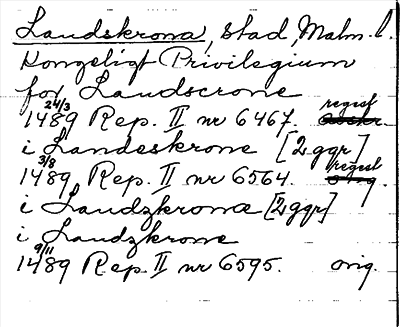 Landskrona, stad, Malm. l.
Kongeligt Privilegium
for Landscrone
24/3 1489 Rep. II nr 6467. regest
i Landeskrone [2 ggr]
3/8 1489 Rep. II nr 6564. regest
i Landzkronæ [2 ggr]
i Landzkrone
9/11 1489 Rep. II nr 6595. orig.